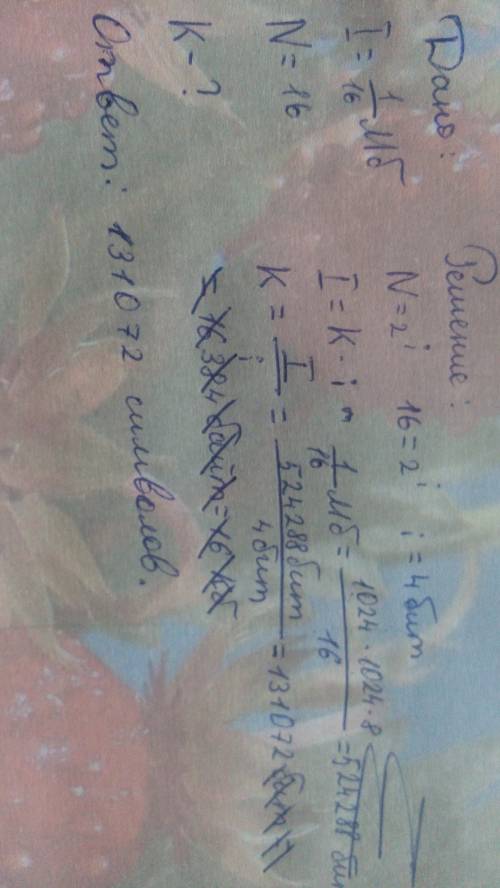 Дано:
I = 1/16 Мб
N = 16
K - ?
Решение:
N = 2^i 16 = 2^i i = 4 бит
I = K · i 1/16 Мб = 1024 · 1024 · 8 / 16 = 524288 би
K = I / i = 524288 бит / 4 бит = 131072 бит =
= 16384 байт = 16 Кб
Ответ: 131072 символов.